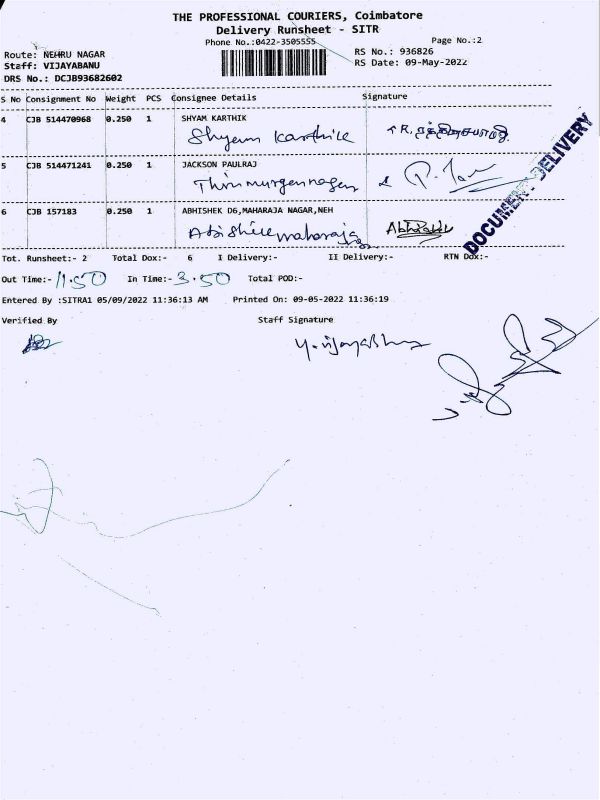 THE PROFESSIONAL COURIERS, Coimbatore
Delivery Runsheet - SITR
Phone No.:0422-3505555 Page No.:2
Route: NEHRU NAGAR RS No.: 936826
Staff: VIJAYABANU RS Date: 09-May-2022
DRS No.: DCJB93682602
S No Consignment No Weight PCS Consignee Details Signature
4 CJB 514470968 0.250 1 SHYAM KARTHIK
Shyam Karthik
5 CJB 514471241 0.250 1 JACKSON PAULRAJ
6 CJB 157183 0.250 1 ABHISHEK D6,MAHARAJA NAGAR,NEH
DOCUMENT DELIVERY
Tot. Runsheet:- 2 Total Dox:- 6 I Delivery:- II Delivery:- RTN Dox:-
Out Time:- 11.50 In Time:- 3.50 Total POD:-
Entered By :SITRA1 05/09/2022 11:36:13 AM Printed On: 09-05-2022 11:36:19
Verified By Staff Signature